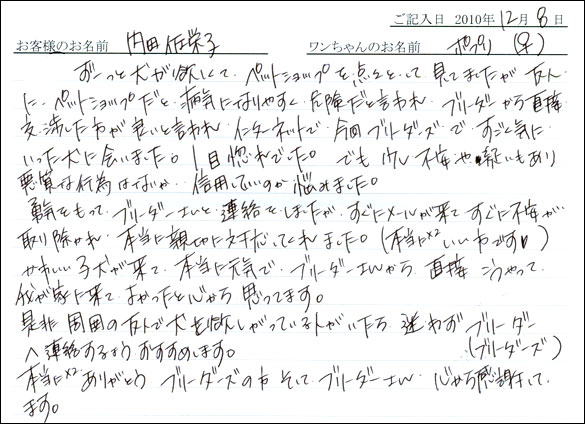 ご記入日 2010年12月8日
お客様のお名前 内田佐栄子 ワンちゃんのお名前 ポプリ (♀)
ずーっと犬が欲しくて、ペットショップを点々として見てましたが友人
に、ペットショップだと病気になりやすく危険だと言われ ブリーダーから直接
交渉した方が良いと言われ インターネットで、今回ブリーダーズで すごく気に
いった犬に会いました。1目惚れでした。でも少し不安や疑いもあり
悪質な行為はないか、信用していいのか悩みました。
勇気をもって、ブリーダーさんと連絡をしましたが、すぐにメールが来て すぐに不安が
取り除かれ、本当に親切に対応してくれました。(本当に×2 いい方です♡)
かわいい子犬が来て、本当に元気で、ブリーダーさんから 直接 こうやって
我が家に来て よかったと心から 思ってます。
是非 周囲の友人で犬を欲しがっている人がいたら 迷わず ブリーダー
へ連絡するよう おすすめします。 (ブリーダーズ)
本当に×2 ありがとう ブリーダーズの方 そして ブリーダーさん 心から感謝して
ます。